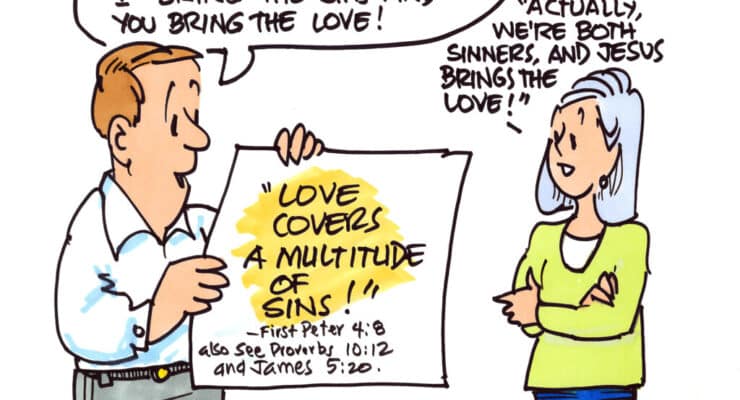 YOU BRING THE LOVE!
"ACTUALLY,
WE'RE BOTH
SINNERS, AND JESUS
BRINGS THE
LOVE!"
"LOVE
COVERS
A MULTITUDE
OF
SINS!"
—First Peter 4:8
also see Proverbs 10:12
and James 5:20.